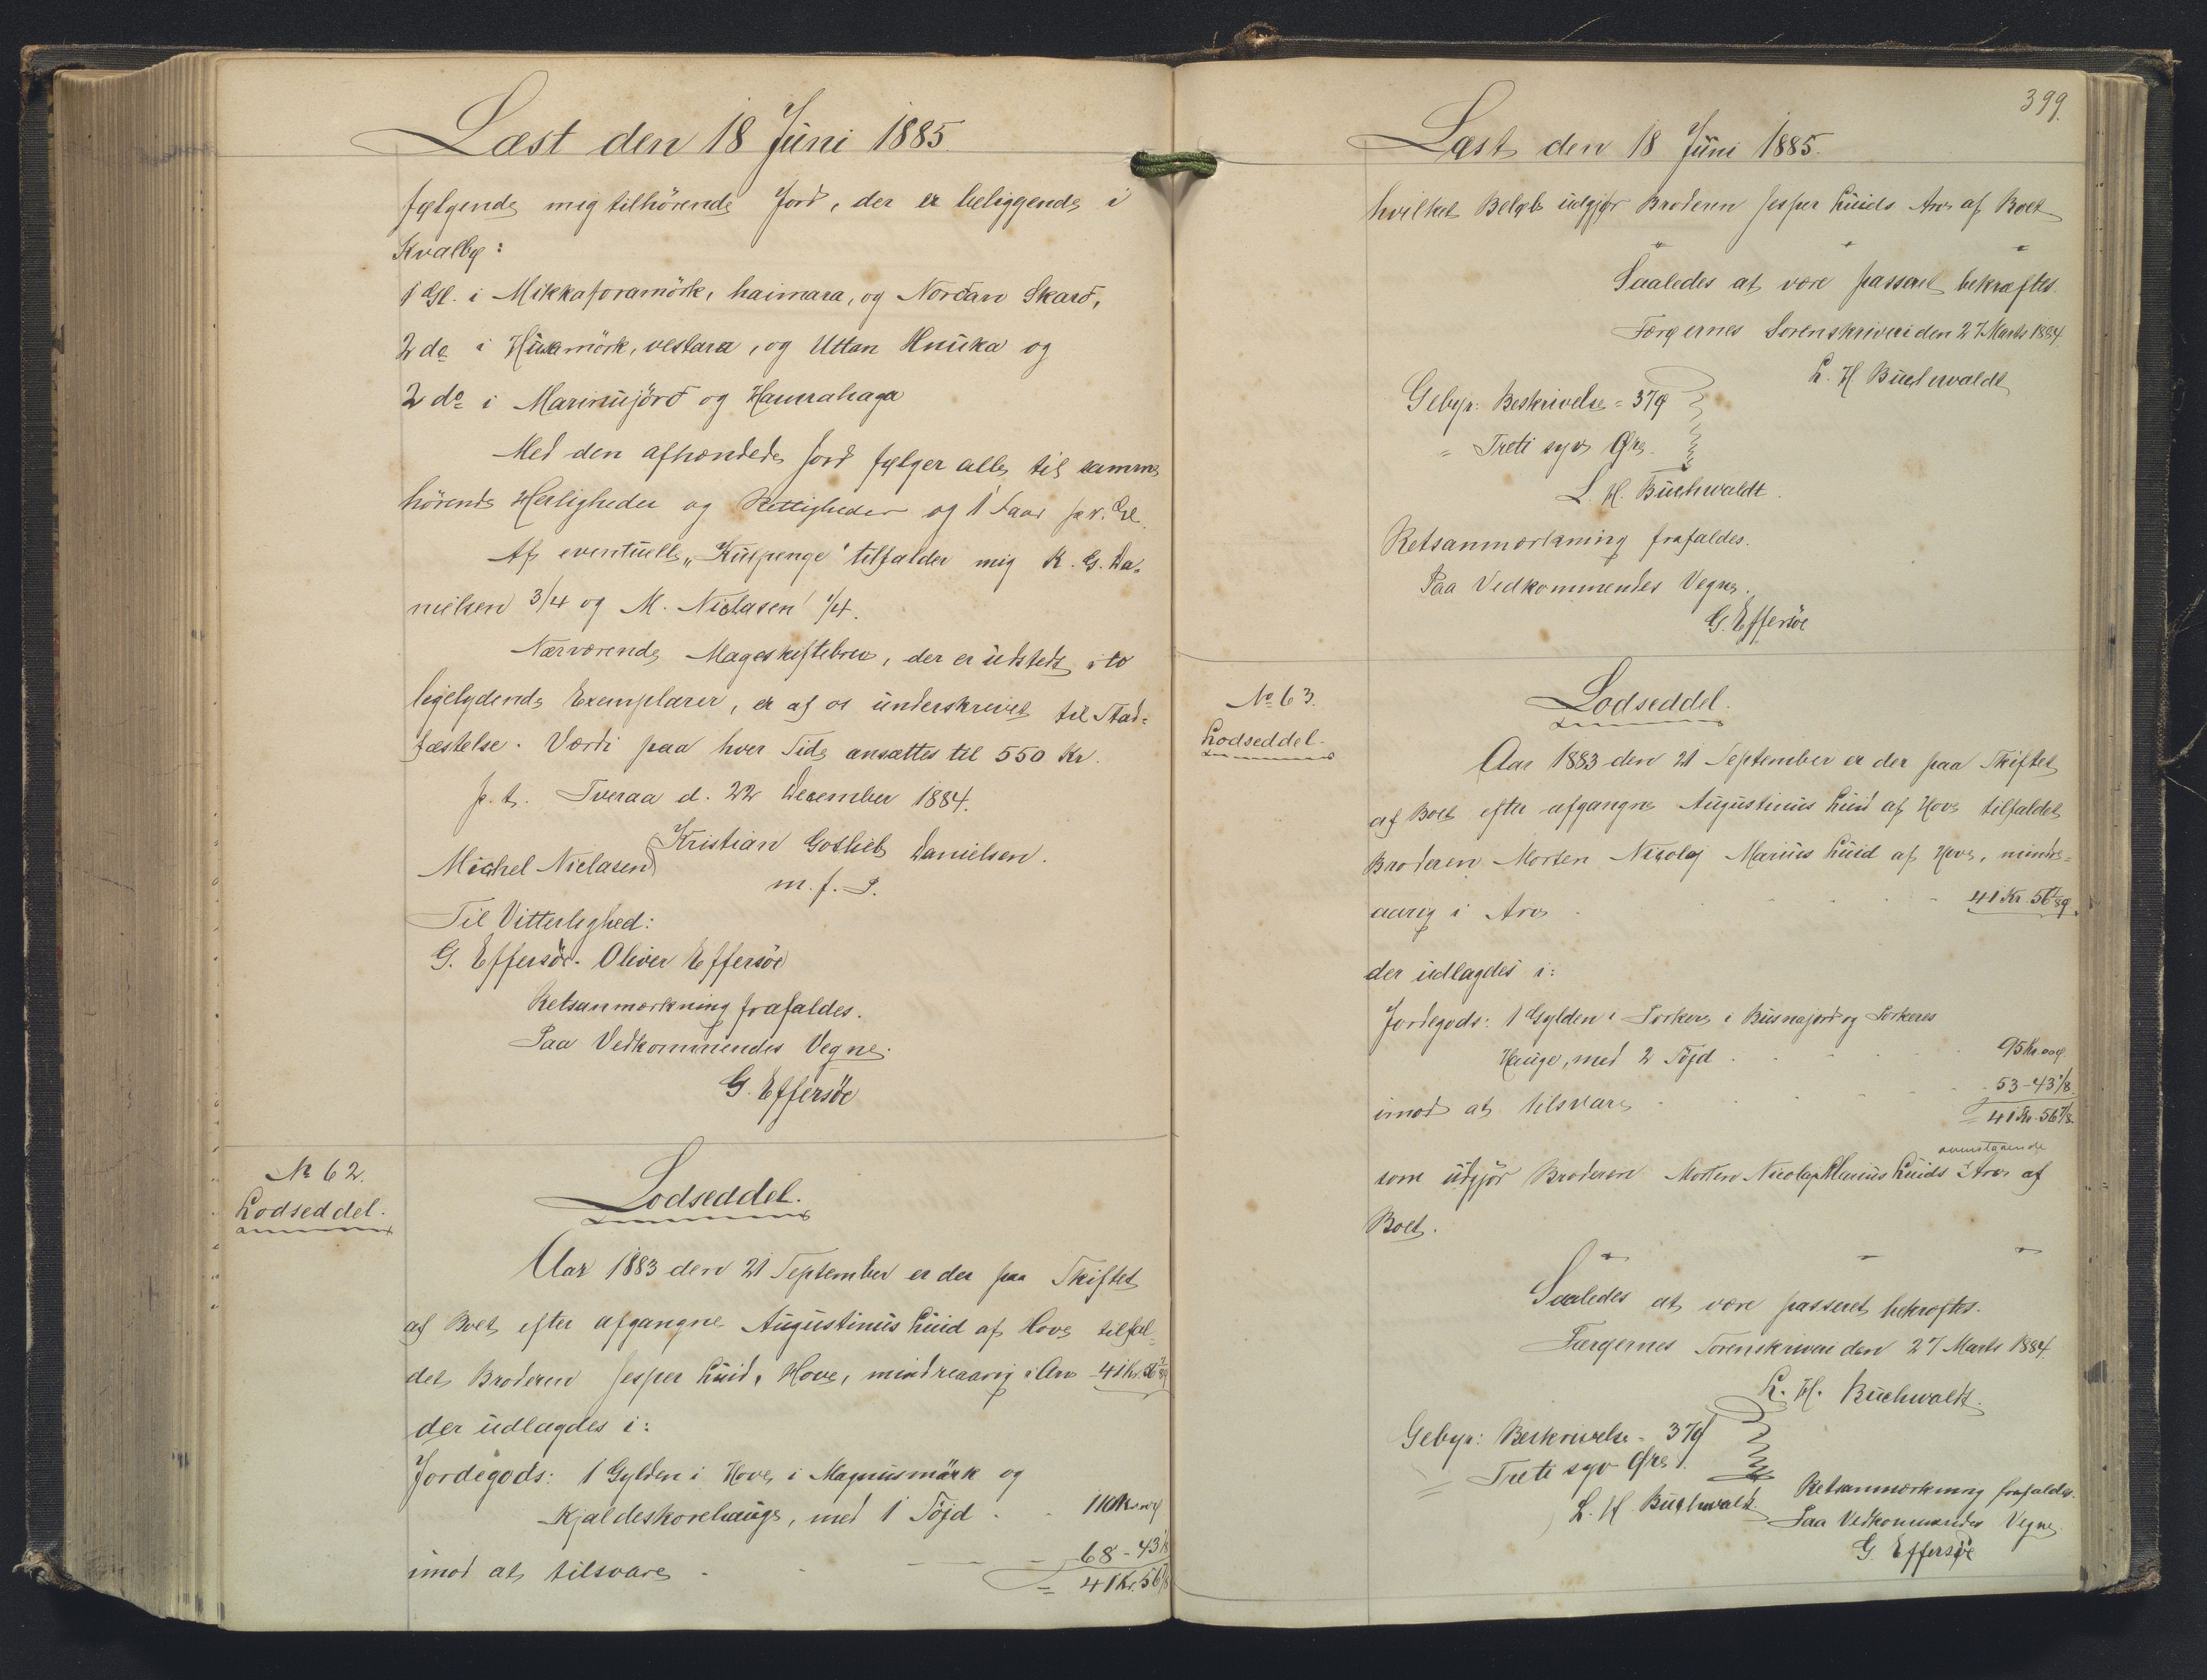 Læst den 18 Juni 1885.
følgende mig tilhørende Jord, der er beliggende i
Kvalbø:
1 Gl. i Mikkaforamörk, haimara, og Nordan Skard,
2 do i Húsamörk, vestara, og Uttan Hnúka og
2 do i Marinujörd og Hamrahaga
Med den afhændede Jord følger alle til samme
hørende Herligheder og Rettigheder og 1 Faar pr. Gl.
Af eventuelle "Kúspenge" tilfalder mig K. G. Da=
nielsen 3/4 og M. Niclasen 1/4.
Nærværende Mageskiftebrev, der er udstedt i to
ligelydende Exemplarer, er af os underskrevet til Stad=
fæstelse. Værdi paa hver Side ansættes til 550 Kr.
p. t. Tveraa d. 22 December 1884.
Kristian Gotlieb Danielsen.
Michel Niclasen
m. f. P.
Til Vitterlighed:
G. Effersöe. Oliver Effersöe
Retsanmærkning frafaldes.
Paa Vedkommendes Vegne.
G. Effersöe
No 62.
Lodseddel.
Lodseddel.
Aar 1883 den 21 September er der paa Skiftet
af Boet efter afgangne Augustinus Luid af Hove tilfal=
det Broderen Jesper Luid, Hove, mindreaarig i Arv 41 Kr. 56 7/8 ø
der udlagdes i:
Jordegods: 1 Gylden i Hove, i Magnusmärk og
Kjaldeskorehauge, med 1 Töjd . . 110 Kr. 00 ø
imod at tilsvare . 68 - 43 1/8
= 41 Kr. 56 7/8
399.
Læst den 18 Juni 1885.
hvilket Beløb udgjør Broderen Jesper Luids Arv af Boet
Saaledes at være passeret bekræftes.
Færøernes Sorenskriveri den 27 Marts 1884.
L. H. Buchwaldt
Gebyr: Beskrivelse = 37 ø
= Treti syv Øre.
L. H. Buchwaldt.
Retsanmærkning frafaldes.
Paa Vedkommendes Vegne.
G. Effersöe
No 63.
Lodseddel.
Lodseddel.
Aar 1883 den 21 September er der paa Skiftet
af Boet efter afgangne Augustinus Luid af Hove tilfaldet
Broderen Morten Nicolaj Marius Luid af Hove, mindre=
aarig i Arv . . . 41 Kr. 56 7/8 ø.
der udlagdes i:
Jordegods: 1 Gylden i Porkere i Busnajord og Porkeres
Hauge, med 2 Töjd . . . 95 Kr. 00 ø
imod at tilsvare . . . 53 - 43 1/8
= 41 Kr. 56 7/8
ovenstaaende
som udgjör Broderen Morten Nicolaj Marius Luids Arv af
Boet.
Saaledes at være passeret bekræftes.
Færøernes Sorenskriveri den 27 Marts 1884.
L. H. Buchwaldt.
Gebyr: Beskrivelse = 37 ø
= Treti syv Øre.
L. H. Buchwaldt.
Retsanmærkning frafaldes.
Paa Vedkommendes Vegne
G. Effersöe